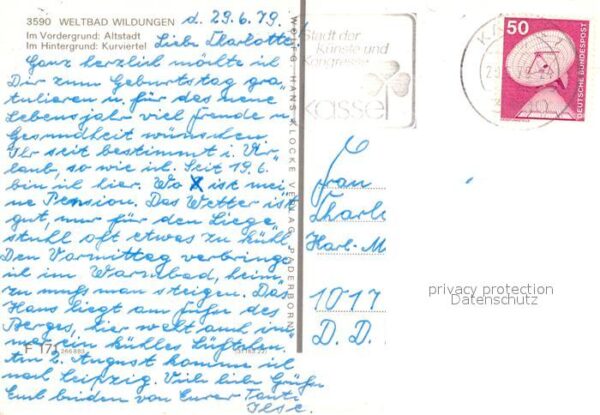 3590 WELTBAD WILDUNGEN
Im Vordergrund: Altstadt
Im Hintergrund: Kurviertel
d. 29.6.79.
Liebe Charlotte!
Ganz herzlich möchte ich
Dir zum Geburtstag gra-
tulieren u. für das neue
Lebensjahr viel Freude u.
Gesundheit wünschen.
Ihr seit bestimmt i. Ur-
laub, so wie ich. Seit 19.6.
bin ich hier. Wo X ist mei
ne Pension. Das Wetter ist
gut, nur für den Liege-
stuhl oft etwas zu kühl.
Den Vormittag verbringe
ich im Warmbad, heim-
zu muß man steigen. Das
Haus liegt am Fuße des
Berges, hier weht auch im-
mer ein kühles Lüftchen.
Am 2. August komme ich
nach Leipzig. Viele liebe Grüße
Euch beiden von Eurer Tante
Ilse.
F 171
WOLFG. HANS KLOCKE VERLAG PADERBORN
Stadt der
Künste und
Kongresse
Kassel
50
DEUTSCHE BUNDESPOST
Frau
Charl
Karl-M
1017
D. D.
privacy protection
Datenschutz